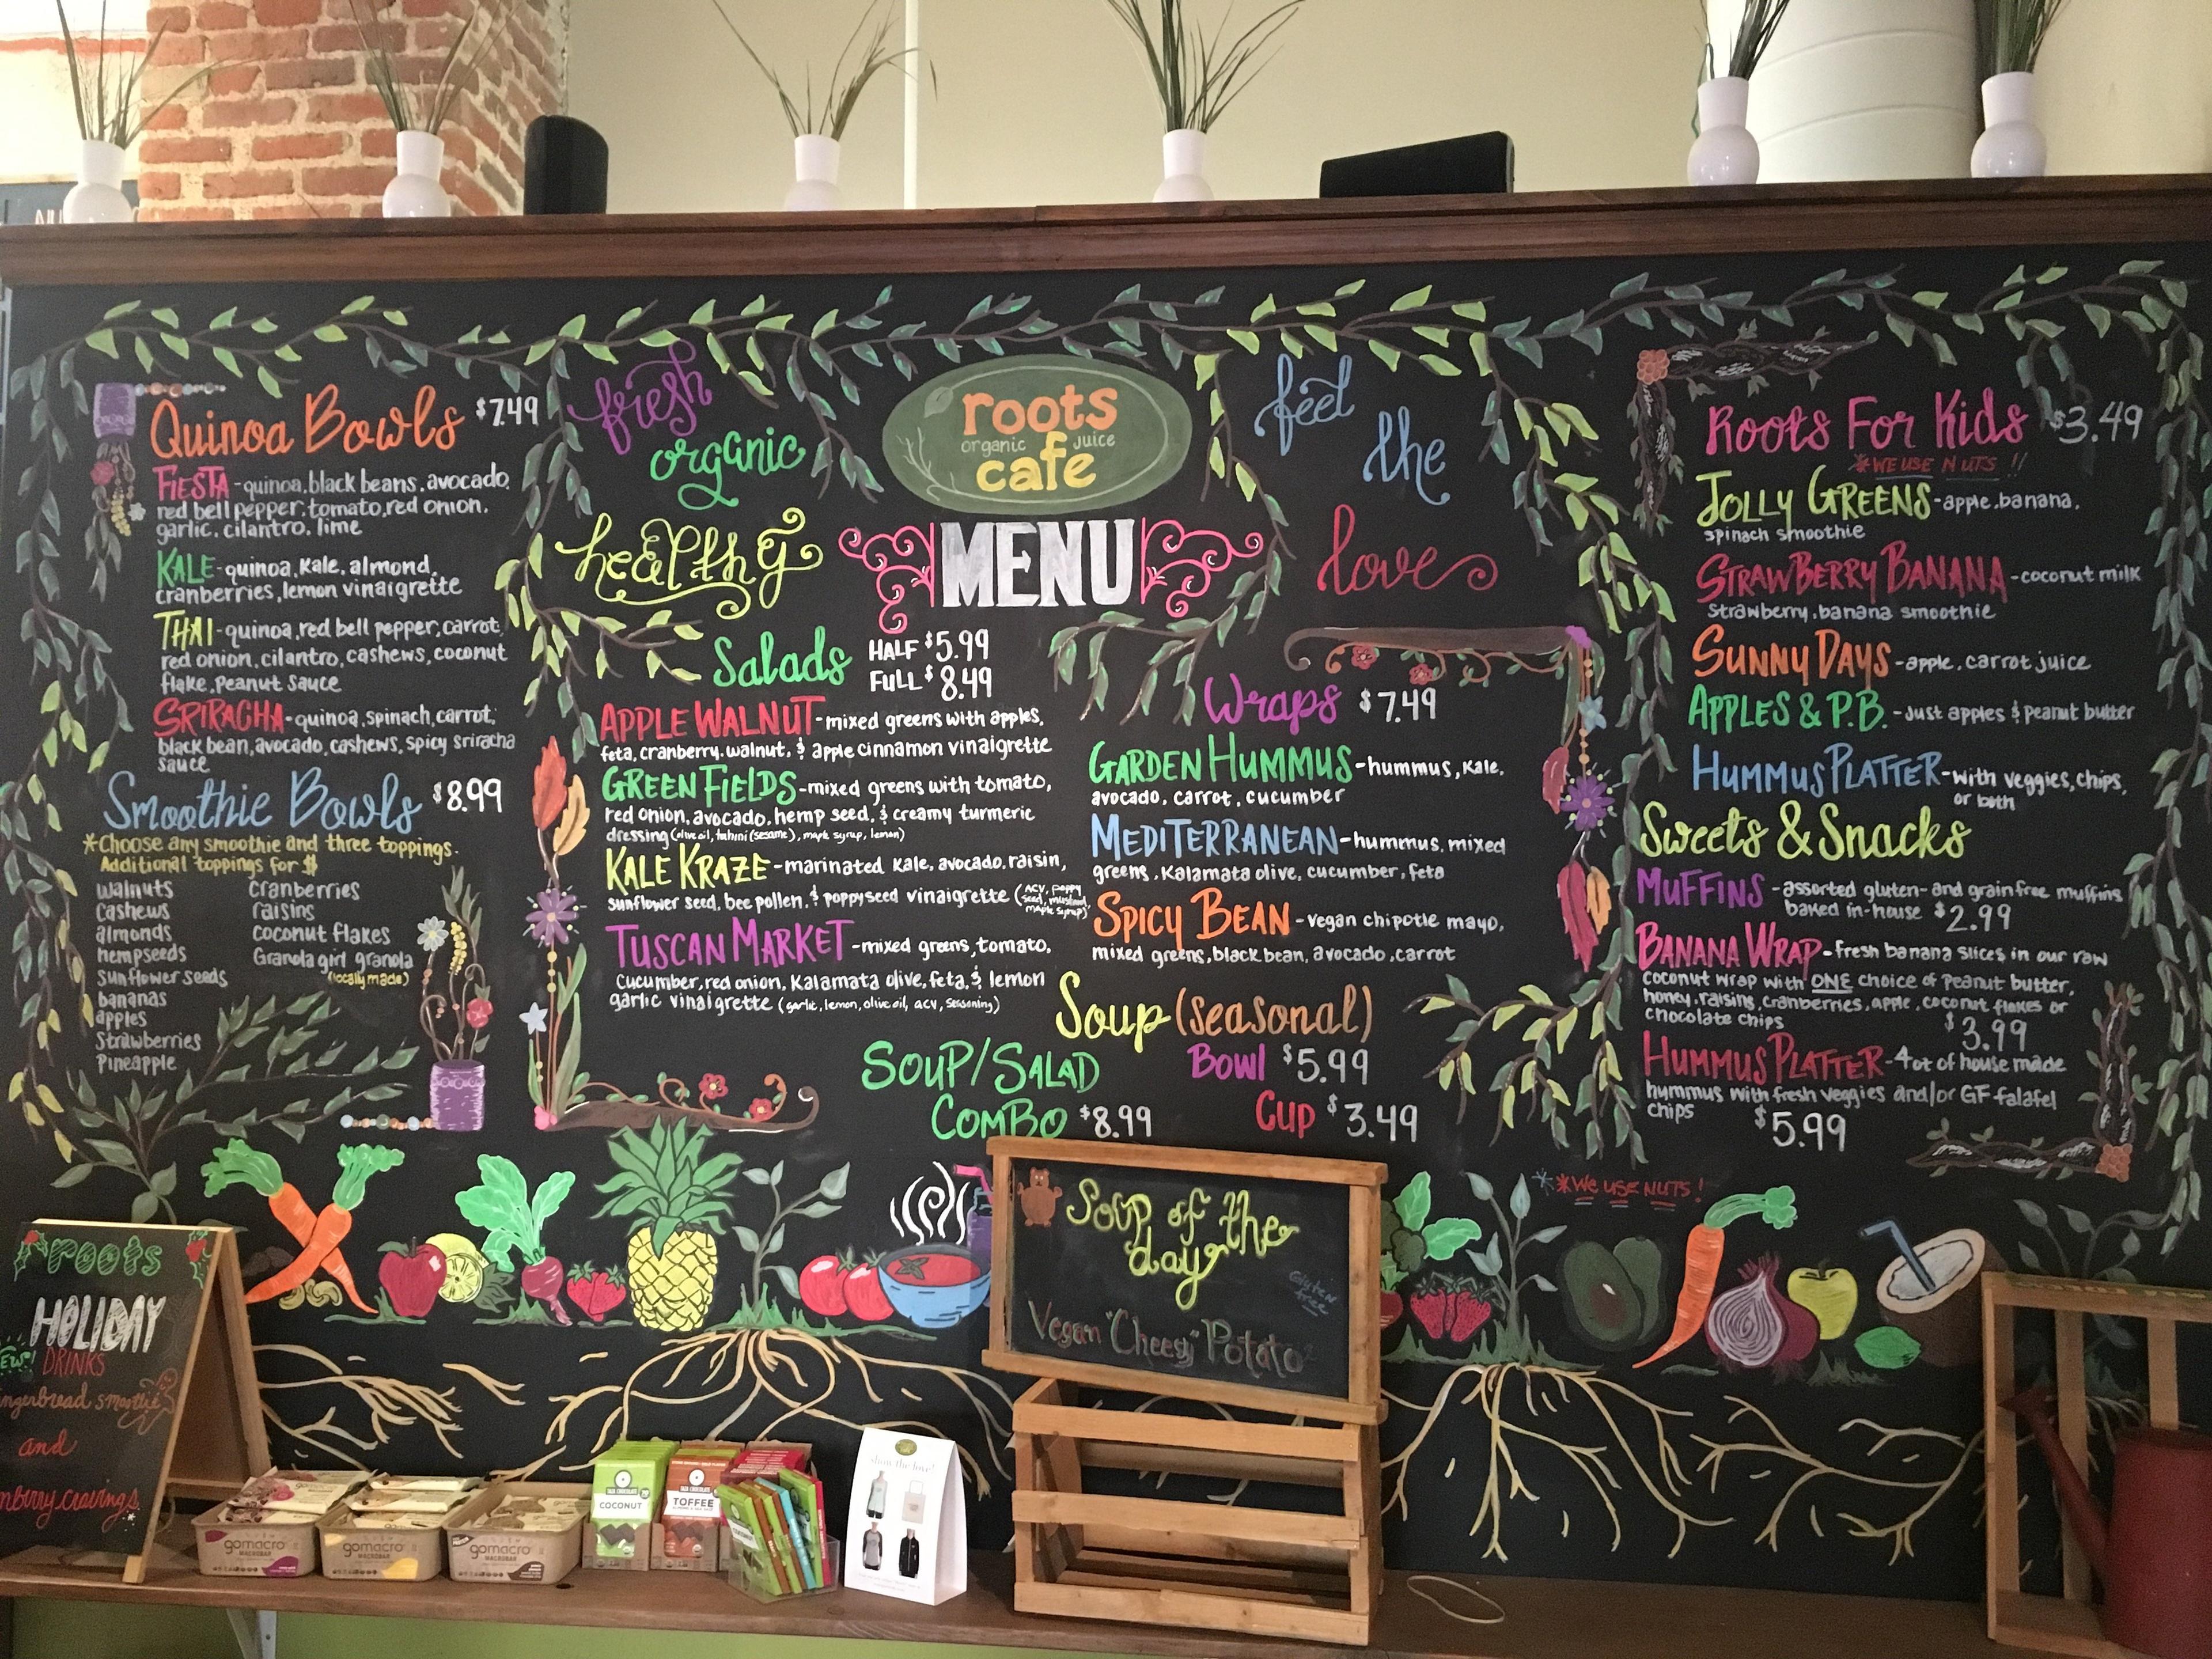 Quinoa Bowls $7.49
FIESTA - quinoa, black beans, avocado,
red bell pepper, tomato, red onion,
garlic, cilantro, lime
KALE - quinoa, kale, almond,
cranberries, lemon vinaigrette
THAI - quinoa, red bell pepper, carrot,
red onion, cilantro, cashews, coconut
flake, Peanut sauce
SRIRACHA - quinoa, spinach, carrot,
black bean, avocado, cashews, spicy sriracha
sauce
Smoothie Bowls $8.99
*Choose any smoothie and three toppings.
Additional toppings for $
walnuts
cashews
almonds
hempseeds
sunflower seeds
bananas
apples
Strawberries
Pineapple
cranberries
raisins
coconut flakes
Granola girl granola
(locally made)
fresh
organic
healthy
roots
organic juice
cafe
MENU
feel
the
love
Salads HALF $5.99
FULL $8.49
APPLE WALNUT - mixed greens with apples,
feta, cranberry, walnut, & apple cinnamon vinaigrette
GREEN FIELDS - mixed greens with tomato,
red onion, avocado, hemp seed, & creamy turmeric
dressing (olive oil, tahini (sesame), maple syrup, lemon)
KALE KRAZE - marinated kale, avocado, raisin,
sunflower seed, bee pollen, & poppyseed vinaigrette (ACV, poppy
seed, mustard,
maple syrup)
TUSCAN MARKET - mixed greens, tomato,
Cucumber, red onion, Kalamata olive, feta, & lemon
garlic vinaigrette (garlic, lemon, olive oil, ACV, seasoning)
Wraps $7.49
GARDEN HUMMUS - hummus, kale,
avocado, carrot, cucumber
MEDITERRANEAN - hummus, mixed
greens, Kalamata olive, cucumber, feta
SPICY BEAN - vegan chipotle mayo,
mixed greens, black bean, avocado, carrot
Soup (seasonal)
Bowl $5.99
Cup $3.49
SOUP/SALAD
COMBO $8.99
Roots For Kids $3.49
*WE USE NUTS!!
JOLLY GREENS - apple, banana,
spinach smoothie
STRAWBERRY BANANA - coconut milk
strawberry, banana smoothie
SUNNY DAYS - apple, carrot juice
APPLES & P.B. - Just apples & peanut butter
HUMMUS PLATTER - with veggies, chips,
or both
Sweets & Snacks
MUFFINS - assorted gluten- and grain free muffins
baked in-house $2.99
BANANA WRAP - fresh banana slices in our raw
coconut wrap with ONE choice of Peanut butter,
honey, raisins, cranberries, apple, coconut flakes or
chocolate chips
$3.99
HUMMUS PLATTER - 4oz of house made
hummus with fresh veggies and/or GF falafel
chips
$5.99
*WE USE NUTS!
Soup of the
day
Gluten
free
Vegan "Cheesy" Potato
roots
HOLIDAY
DRINKS
smoothie
and
cravings
gomacro
MACROBAR
gomacro
MACROBAR
gomacro
MACROBAR
TAZA CHOCOLATE
COCONUT
TAZA CHOCOLATE
TOFFEE
show the love!